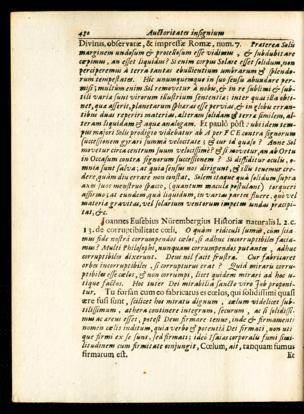 430 Auctoritates insignium
Divinus, observatæ, & impressæ Romæ, num. 7. Præterea Solis
marginem undosum & procellosum esse vidimus, & sub dubitare
cœpimus, an esset liquidus? Si enim corpus Solare esset solidum, non
perciperemus à terra tantas ebullientium umbrarum & splendo-
rum tempestates. Hic unumquemque in suo sensu abundare per-
misi; multùm enim Sol removetur à nobis, & in re sublimi & sub-
tili varia sunt virorum illustrium
net, quæ asserit, planetarum sphæras esse pervias, & in globis erran-
tibus duas reperiri materias, alteram solidam & terræ similem, al-
teram liquidam & aquæ analogam. Et paulò post: ubi idem tem-
pus majori Solis prodigio videbatur ab A per F C E contra signorum
successionem gyrari summâ velocitate: & cur id quæso? Anne Sol
movetur circa centrum suum velocissimè? & si movetur, an ab Ortu
in Occasum contra signorum successionem? Si diffiditur oculis, o-
mnia sunt salva; at quia sensus nos dirigunt, & illis tenemur cre-
dere, quàm diu errare non constat, Solem itaque quasi solidum supra
axem suos menstruo spatio, (quantum maculæ postulant) torqueri
asserimus; at eundem, quà liquidum, in varias partes fluere, quò vel
materiæ gravitas, vel solarium ventorum impetus undas præcipi-
tat, &c.
Joannes Eusebius Nürembergius Historiæ naturalis l. 2. c.
13. de corruptibilitate cœli. O quàm ridiculi sumus, cùm scia-
mus fide nostrâ corrumpendos cœlos, & adhuc incorruptibiles facia-
mus? Multi Philosophi, nunquam corrumpendos putantes, adhuc
corruptibiles dixerunt. Deus nil facit frustra. Cur fabricaret
orbes incorruptibiles, si corrupturus erat? Quid mirum corru-
ptibiles esse cœlos, & non corrumpi, licet quidem mirari ad hoc u-
tique factos. Hoc inter Dei mirabilia sanctè viro Job proponi-
tur. Tu forsan cum eo fabricatus es cœlos, qui solidissimi quasi
ære fusi sunt, scilicet hoc miraris dignum, cœlum videlicet sub-
tilissimum, æthera continere integrum, securum, ac si solidissi-
mus ac æreus esset, potest Deus firmare tenue, inde & firmamenti
nomen cœlis inditum, quia verbo & potentiâ Dei firmati, non uti-
que firmi ex se sunt, sed firmati; ideò Isaias corporalis fumi simi-
litudinem cum firmitate conjungit, Cœlum, ait, tanquam fumus
firmatum est. Et